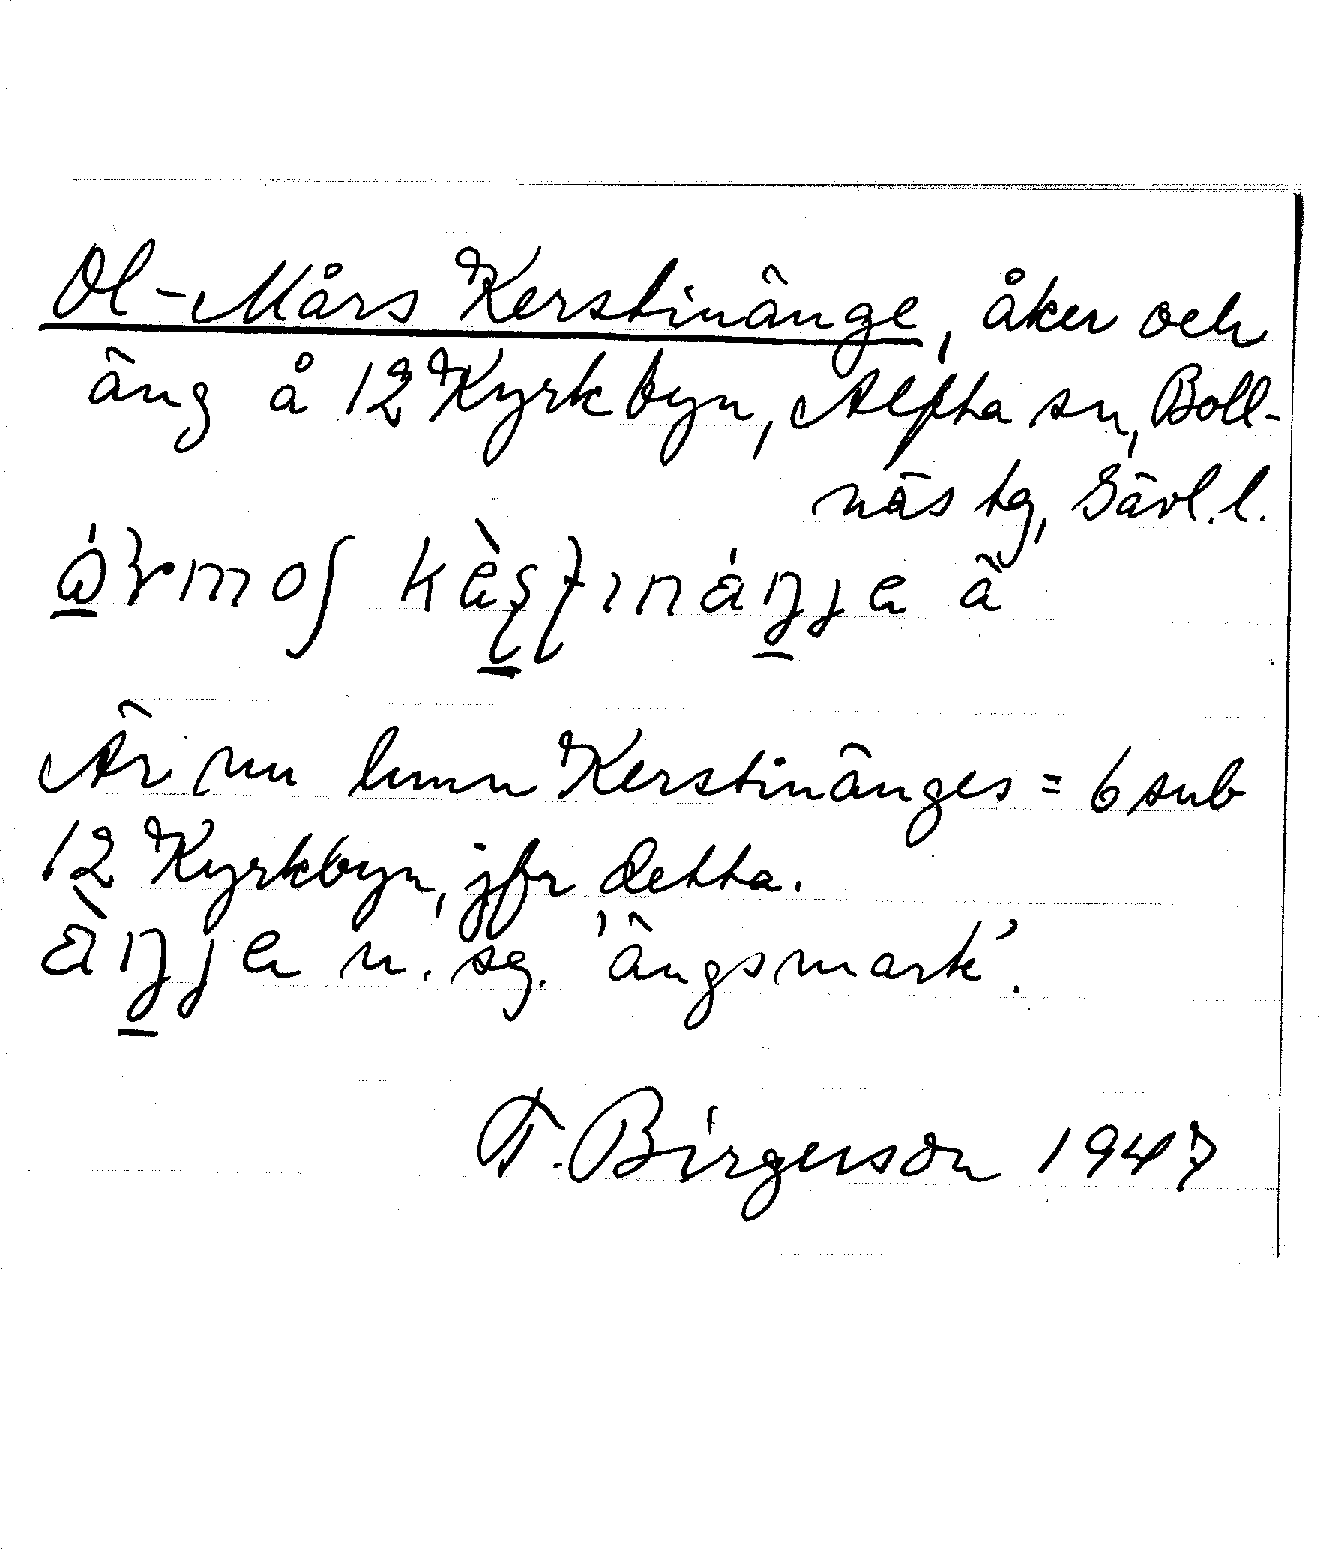 Ol-Mårs Kerstinänge, åker och
äng å 12 Kyrkbyn, Alfta sn, Boll-
näs tg, Gävl. l.
Är nu lmn Kerstinänges = 6 sub
12 Kyrkbyn, jfr detta.
äŋje n. sg. 'ängsmark'.
T. Birgerson 1947